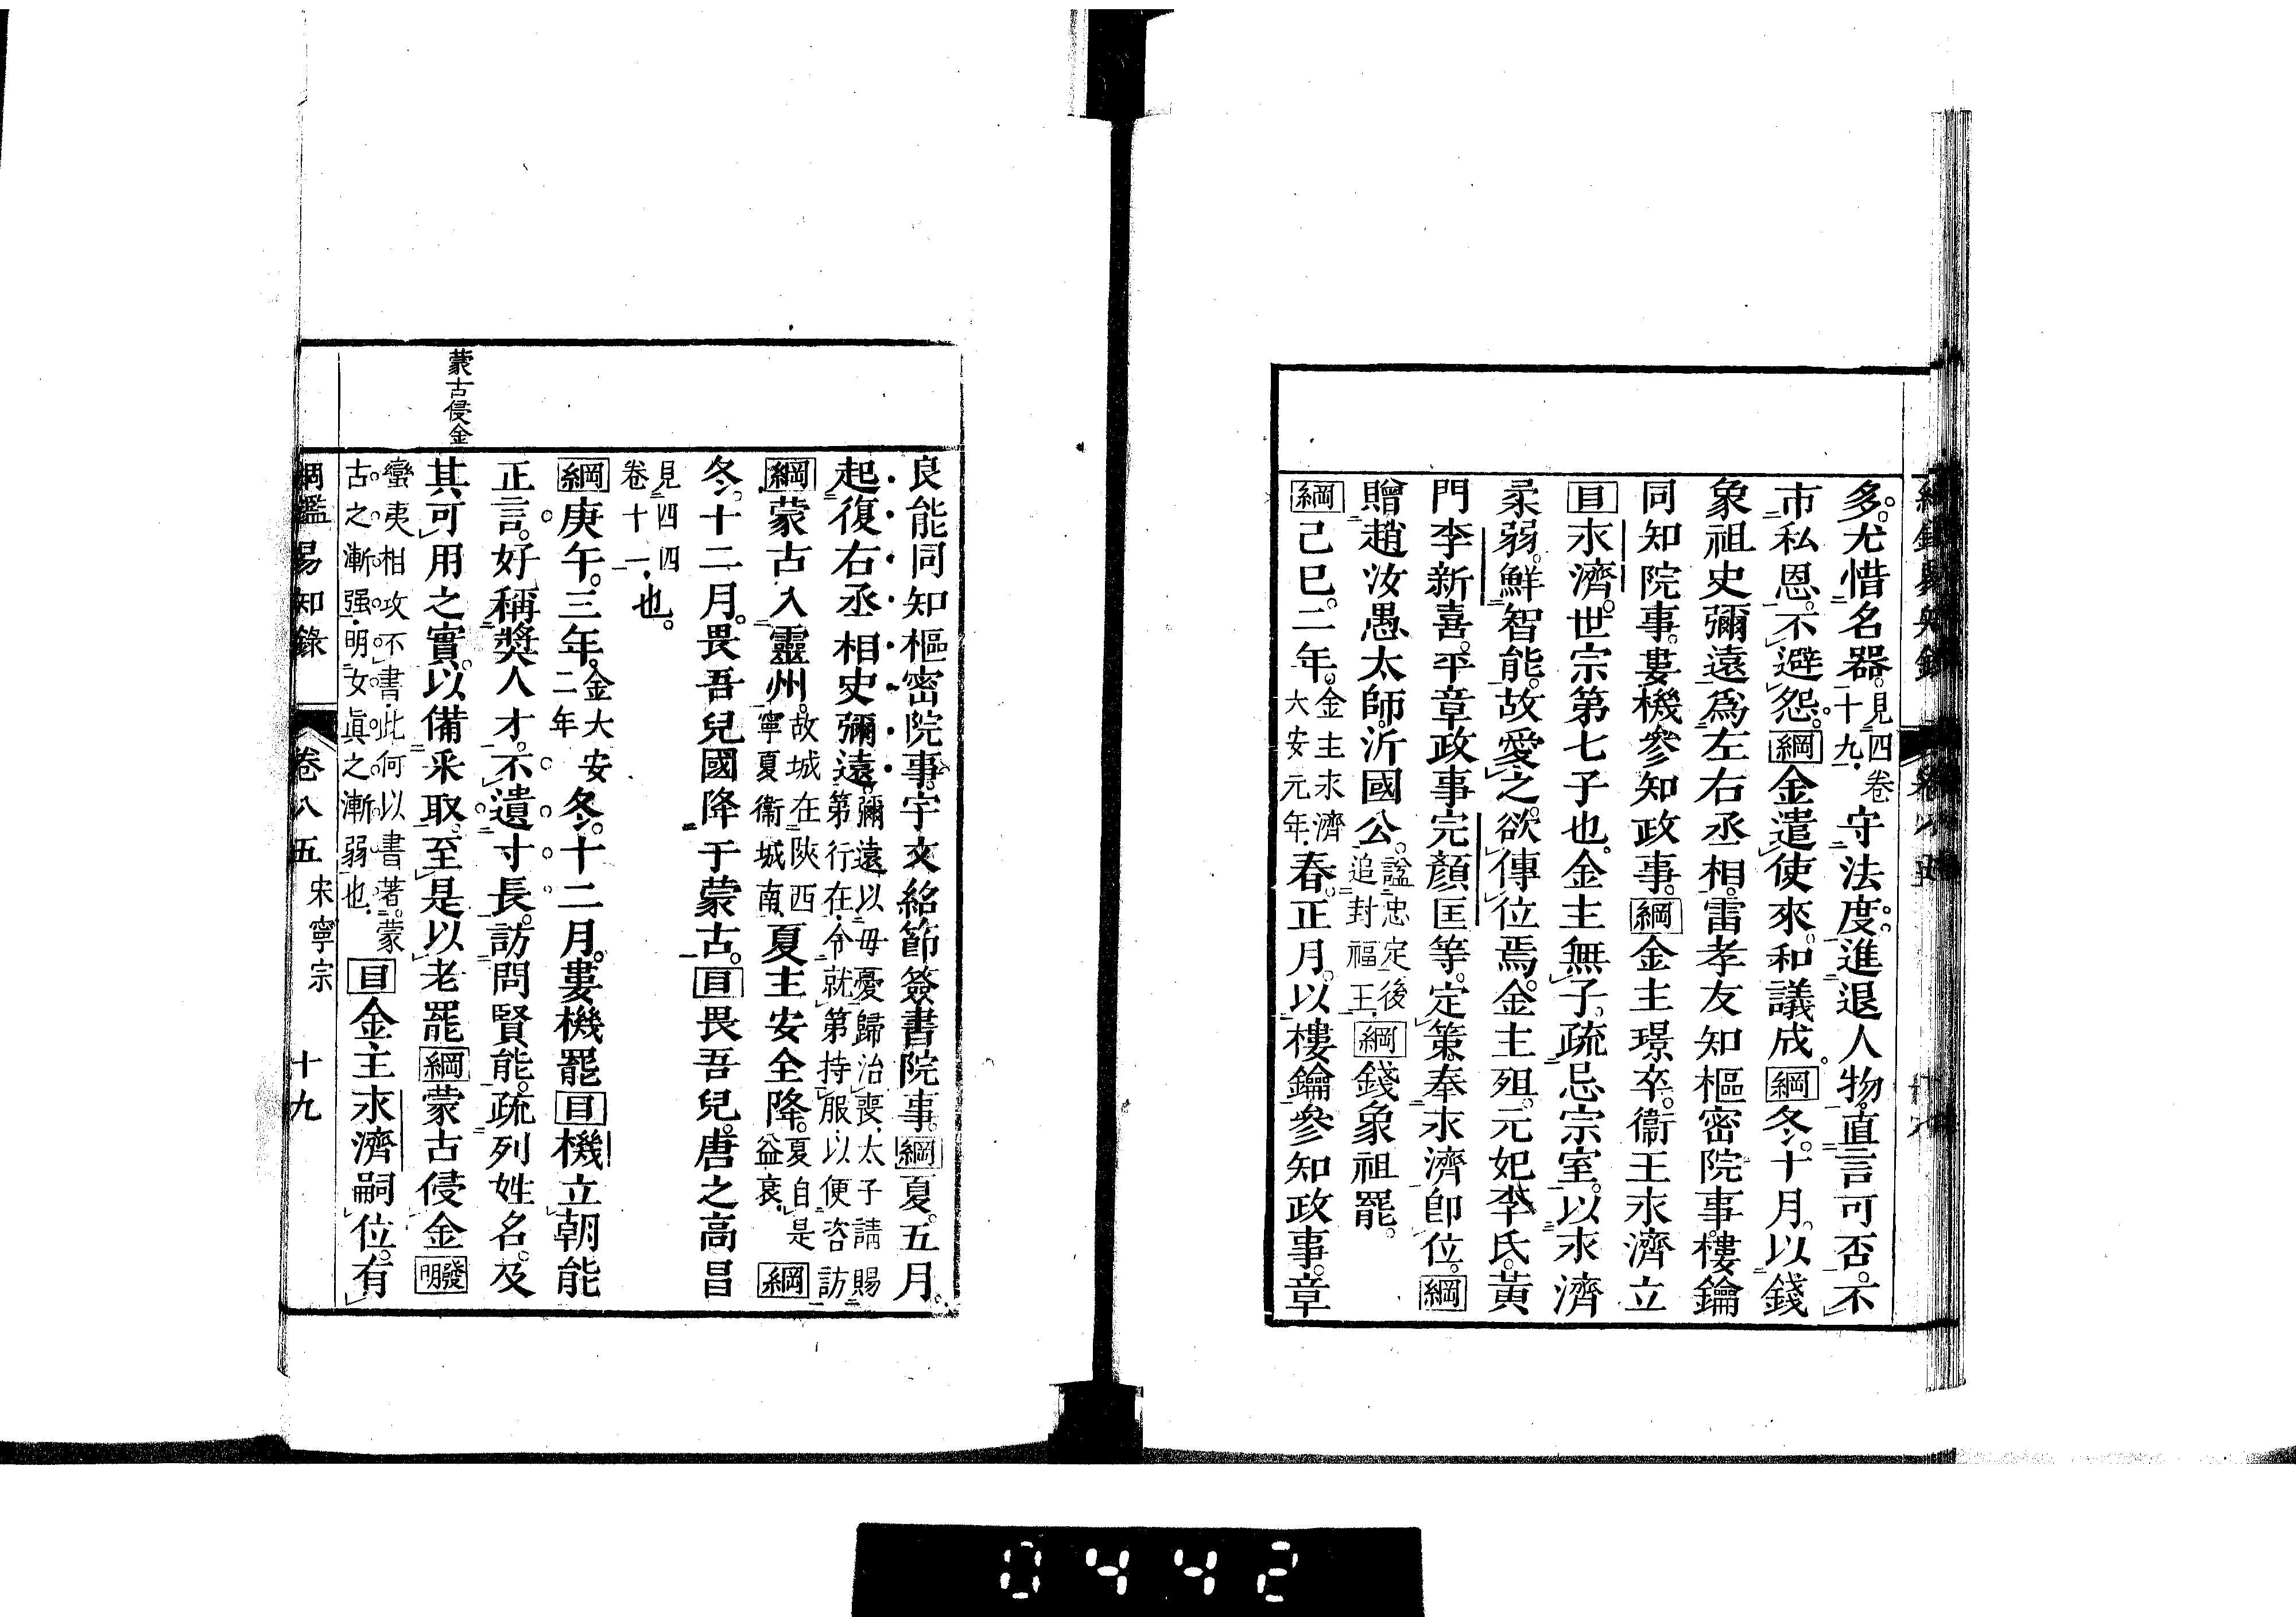 多。尤惜名器。見四卷十九。守法度。進退人物。直言可否。不
市私恩。不避怨。綱金遣使來。和議成。綱冬。十月。以錢
象祖史彌遠爲左右丞相。雷孝友知樞密院事。樓鑰
同知院事。婁機參知政事。綱金主璟卒。衞王永濟立
目永濟。世宗第七子也。金主無子。疏忌宗室。以永濟
柔弱。鮮智能。故愛之。欲傳位焉。金主殂。元妃李氏。黃
門李新喜。平章政事完顏匡等。定策。奉永濟卽位。綱
贈趙汝愚太師。沂國公。諡忠定後追封福王。綱錢象祖罷。
綱己巳。二年。金主永濟大安元年。春。正月。以樓鑰參知政事。章
良能同知樞密院事。宇文紹節簽書院事。綱夏。五月。
起復右丞相史彌遠。彌遠以毋憂歸治喪、太子請賜第行在、令就第持服、以便咨訪
綱蒙古入靈州。故城在陝西寧夏衞城南、夏主安全降。夏自是益衰、綱
冬。十二月。畏吾兒國降于蒙古。目畏吾兒。唐之高昌
見四四卷十一、也。
綱庚午。三年。金大安二年冬。十二月。婁機罷目機立朝能
正言。好稱獎人才。不遺寸長。訪問賢能。疏列姓名。及
其可用之實。以備采取。至是以老罷綱蒙古侵金發明
蠻夷相攻不書。此何以書著。蒙古之漸强。明女眞之漸弱也、目金主永濟嗣位。有
蒙古侵金
綱鑑易知錄 卷八五 宋寧宗 十九
0442